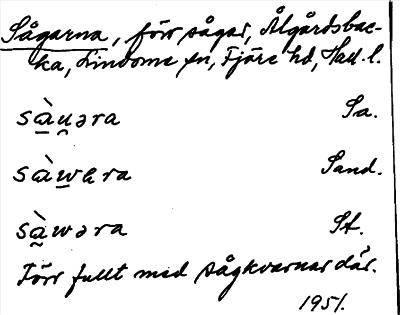 Sågarna, förr sågar, Ålgårdsbac-
ka, Lindome sn, Fjäre hd, Hall. l.
sàu̯əra Sa.
sàwera Sand.
sàwəra St.
Förr fullt med sågkvarnar där.
1951.